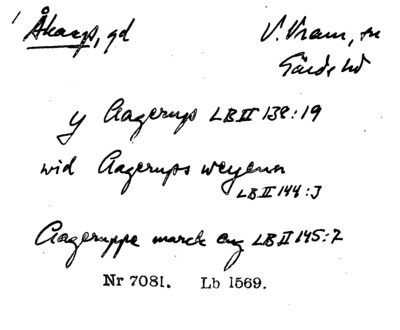 Åkarps, gd V. Vram, sn
Gärds hd
y Aagerups LB II 138:19
wid Aagerups weyenn
LB II 144:J
Aageruppe marck eng LB II 145:2
Nr 7081. Lb 1569.